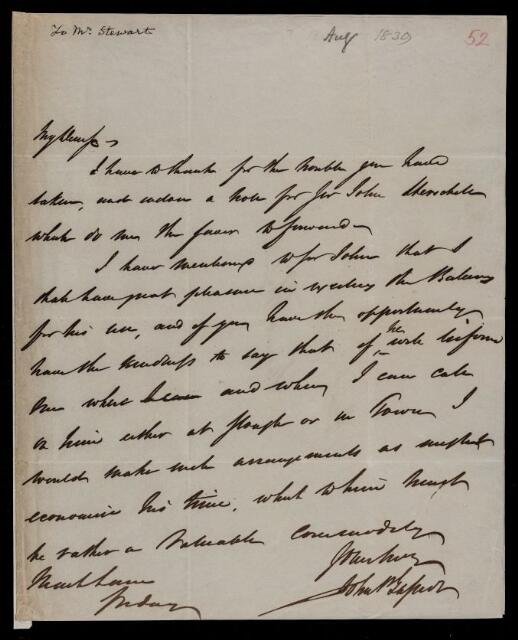 To Mr. Stewart
Aug 1839
52
My dear Sir
I have to thank for the trouble you have
taken, and enclose a note for Sir John Herschel
which do me the favor to forward
I have mentioned to Sir John that I
shall have great pleasure in the Balance
for his use, and if you have the opportunity
have the kindness to say that if he will inform
me what and when I can call
on him either at Slough or in Town I
would make such arrangements as might
economise his time, which to him must
be rather a valuable commodity
Yours truly
John
Mark Lane
Friday